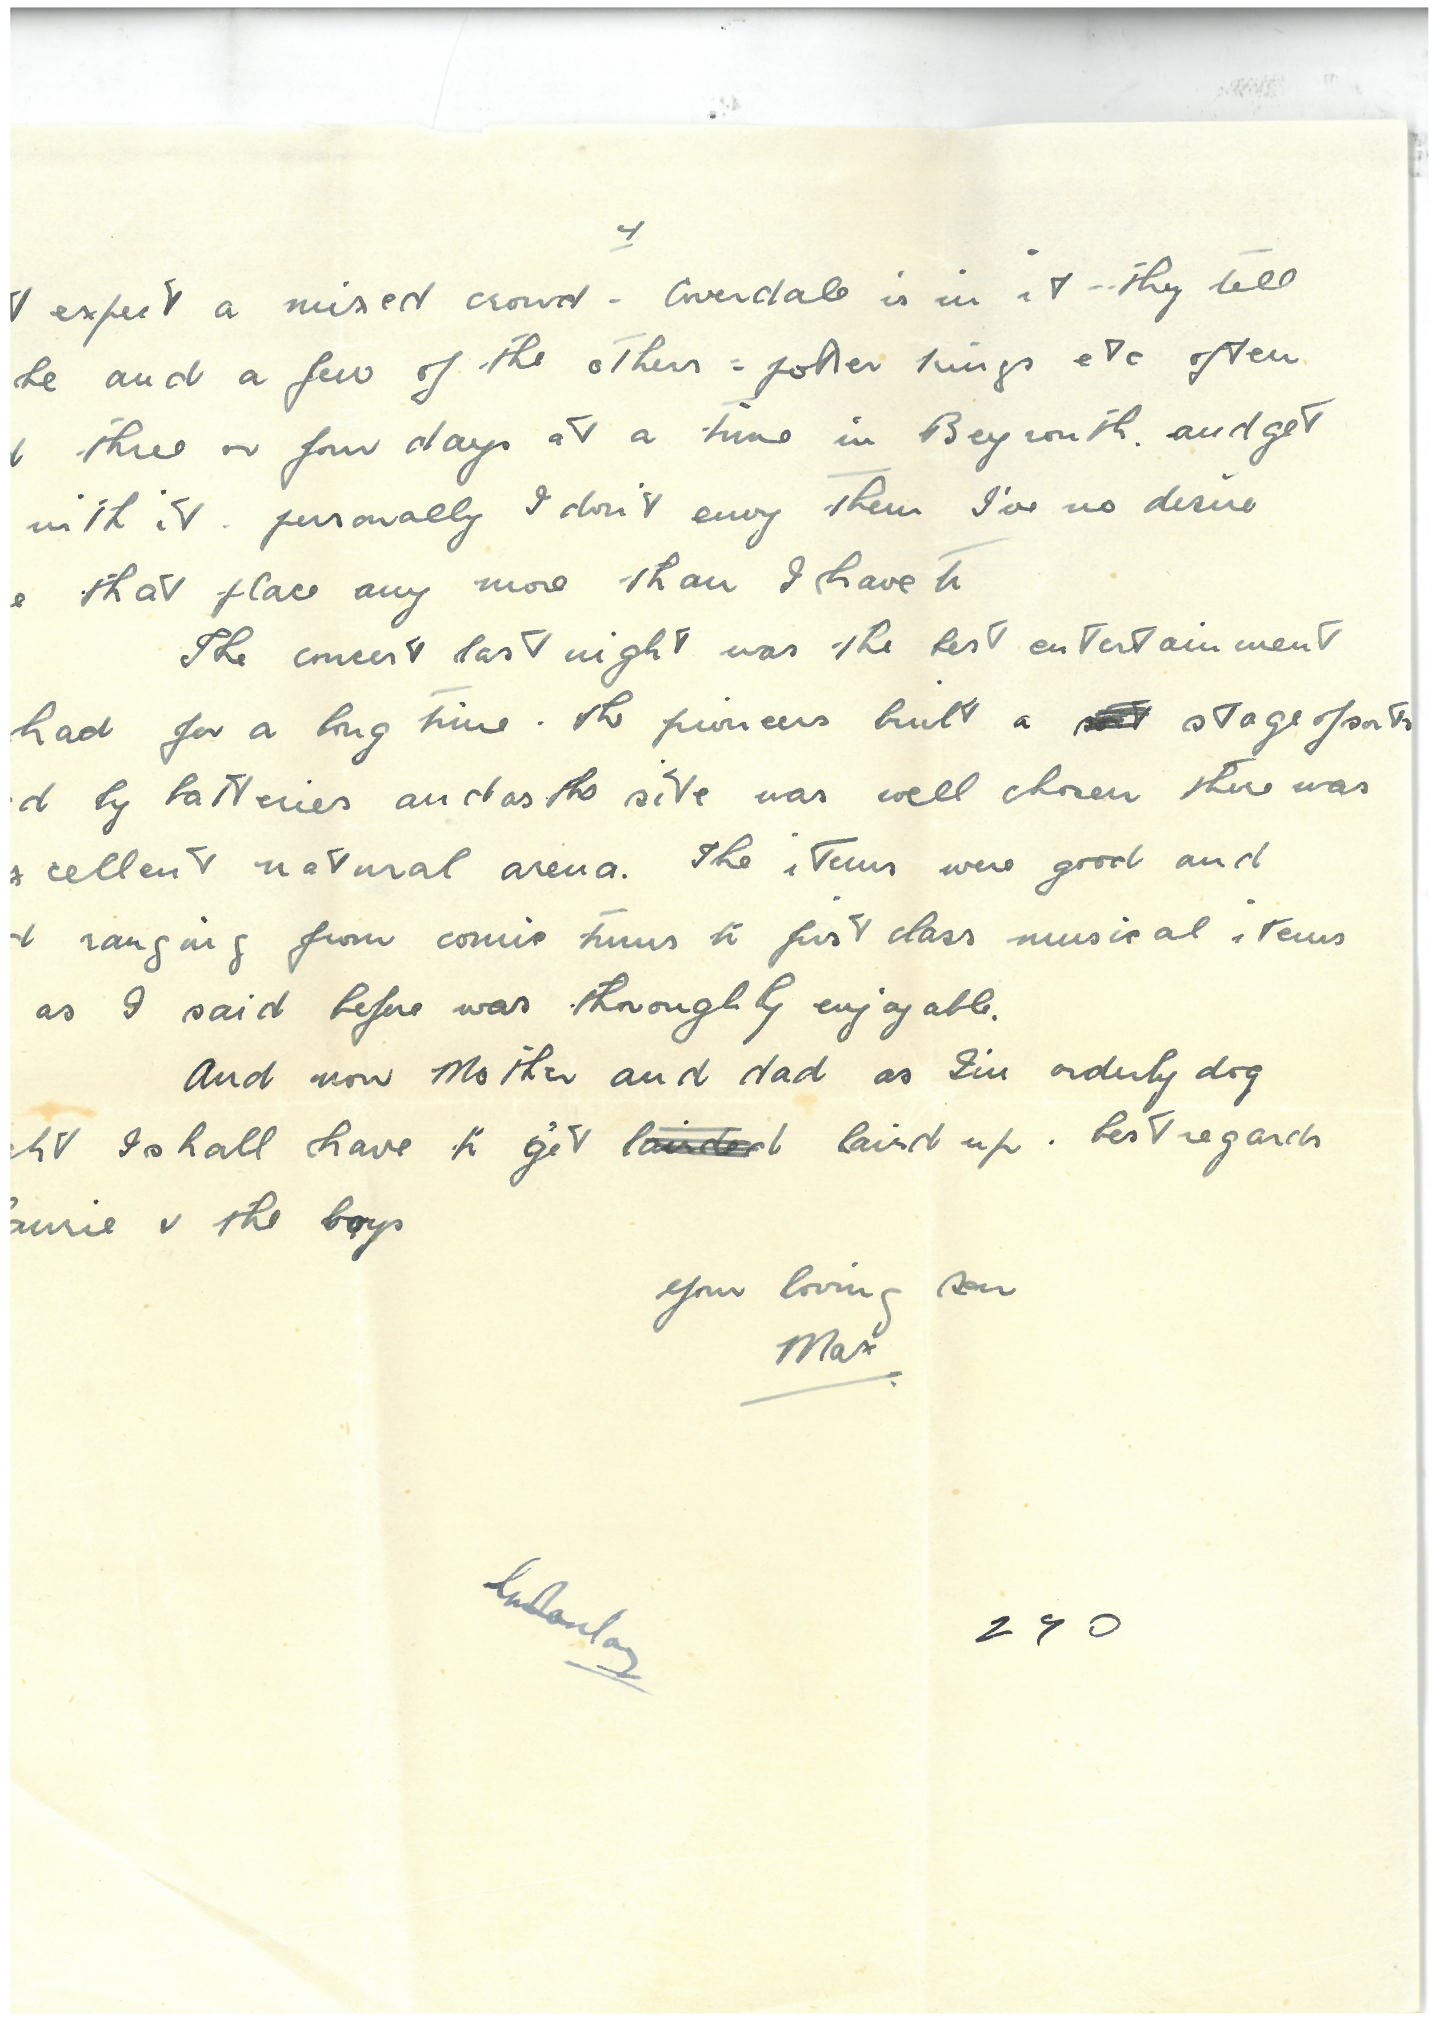 4
t expect a mixed crowd - Coverdale is in it - they tell
he and a few of the others = poker kings etc often
d three or four days at a time in Beyrouth. and get
with it. personally I don't envy them I've no desire
e that place any more than I have to
The concert last night was the best entertainment
had for a long time. the pioneers built a stage of sorts
d by batteries and as the site was well chosen there was
xcellent natural arena. The items were good and
d ranging from comic turns to first class musical items
as I said before was thoroughly enjoyable.
And now Mother and dad as I'm orderly dog
ght I shall have to get laired up. best regards
aurie & the boys
Your loving son
Max
290